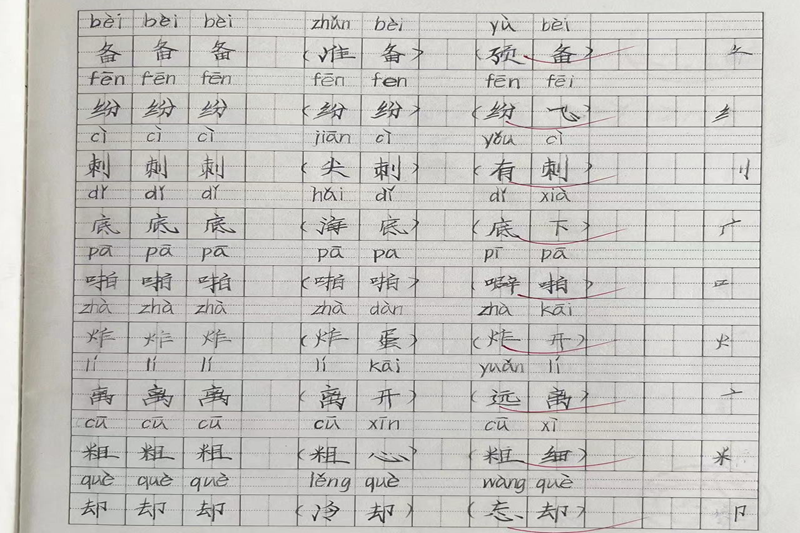 bèi bèi bèi zhǔn bèi yù bèi
备 备 备 (准 备) (预 备) 夂
fēn fēn fēn fēn fen fēn fēi
纷 纷 纷 (纷 纷) (纷 飞) 纟
cì cì cì jiān cì yǒu cì
刺 刺 刺 (尖 刺) (有 刺) 刂
dǐ dǐ dǐ hǎi dǐ dǐ xià
底 底 底 (海 底) (底 下) 广
pā pā pā pā pa pī pā
啪 啪 啪 (啪 啪) (噼 啪) 口
zhà zhà zhà zhà dàn zhà kāi
炸 炸 炸 (炸 蛋) (炸 开) 火
lí lí lí lí kāi yuǎn lí
离 离 离 (离 开) (远 离) 亠
cū cū cū cū xīn cū xì
粗 粗 粗 (粗 心) (粗 细) 米
què què què lěng què wàng què
却 却 却 (冷 却) (忘 却) 卩